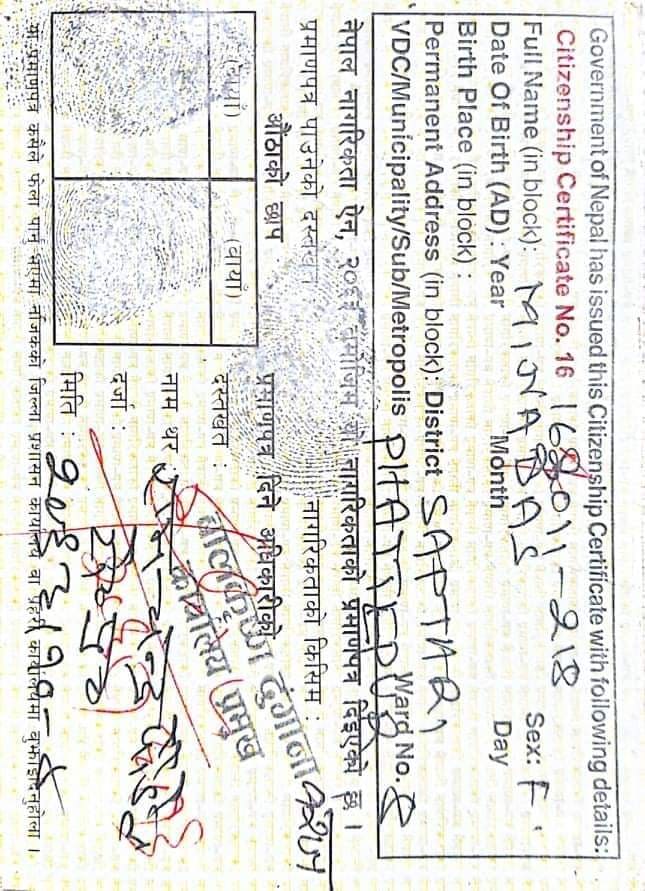 Government of Nepal has issued this Citizenship Certificate with following details:
Citizenship Certificate No. 16
Full Name (in block): MINA DAS Sex: F
Date Of Birth (AD) : Year Month Day
Birth Place (in block) :
Permanent Address (in block): District SAPTARI
VDC/Municipality/Sub/Metropolis PHATTEPUR Ward No. 8
नेपाल नागरिकता ऐन, २०६३ बमोजिम यो नागरिकताको प्रमाणपत्र दिइएको छ ।
प्रमाणपत्र पाउनेको दस्तखत नागरिकताको किसिम : वंशज
औंठाको छाप प्रमाणपत्र दिने अधिकारीको
(दायाँ) (बायाँ)
दस्तखत :
बालकृष्ण दुंगाना
कार्यालय प्रमुख
नाम थर
दर्जा :
मिति :
यो प्रमाणपत्र कसैले फेला पार्नु भएमा नजिकको जिल्ला प्रशासन कार्यालय वा प्रहरी कार्यालयमा वुझाईदिनुहोला ।